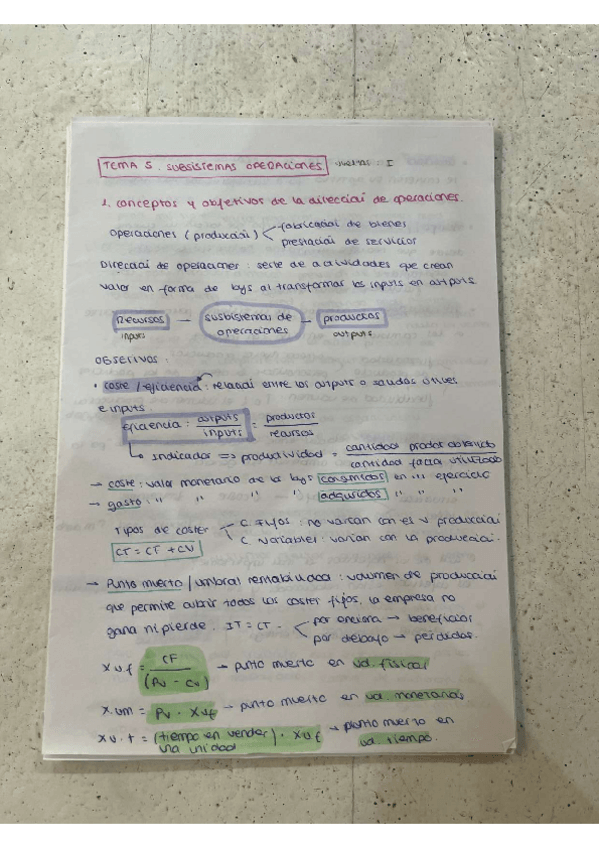 TEMA 5. SUBSISTEMAS OPERACIONES I
1. conceptos y objetivos de la dirección de operaciones.
operaciones (producción) fabricación de bienes
prestación de servicios
Dirección de operaciones: serie de actividades que crean
valor en forma de bys al transformar los inputs en outputs.
Recursos — subsistemas de operaciones — productos
inputs outputs
OBJETIVOS:
• coste / eficiencia: relación entre los outputs o salidas útiles
e inputs.
eficiencia: outputs / inputs = productos / recursos
↳ indicador => productividad = cantidad produc obtenido / cantidad factor utilizado
→ coste: valor monetario de la bys consumidos en 1 ejercicio
→ gasto: " " " " adquiridos " " "
Tipos de costes C Fijos: no varían con el v producción
CT = CT + CV C variables: varían con la producción.
→ Punto muerto / umbral rentabilidad: volumen de producción
que permite cubrir todos los costes fijos, la empresa no
gana ni pierde. IT = CT. por encima → beneficios
por debajo → pérdidas.
x u.f = CF / (Pv - Cv) → punto muerto en ud. físicas
x.um = Pv · xuf → punto muerto en ud. monetarias
x u.t = (tiempo en vender una unidad) · xuf → punto muerto en ud. tiempo.